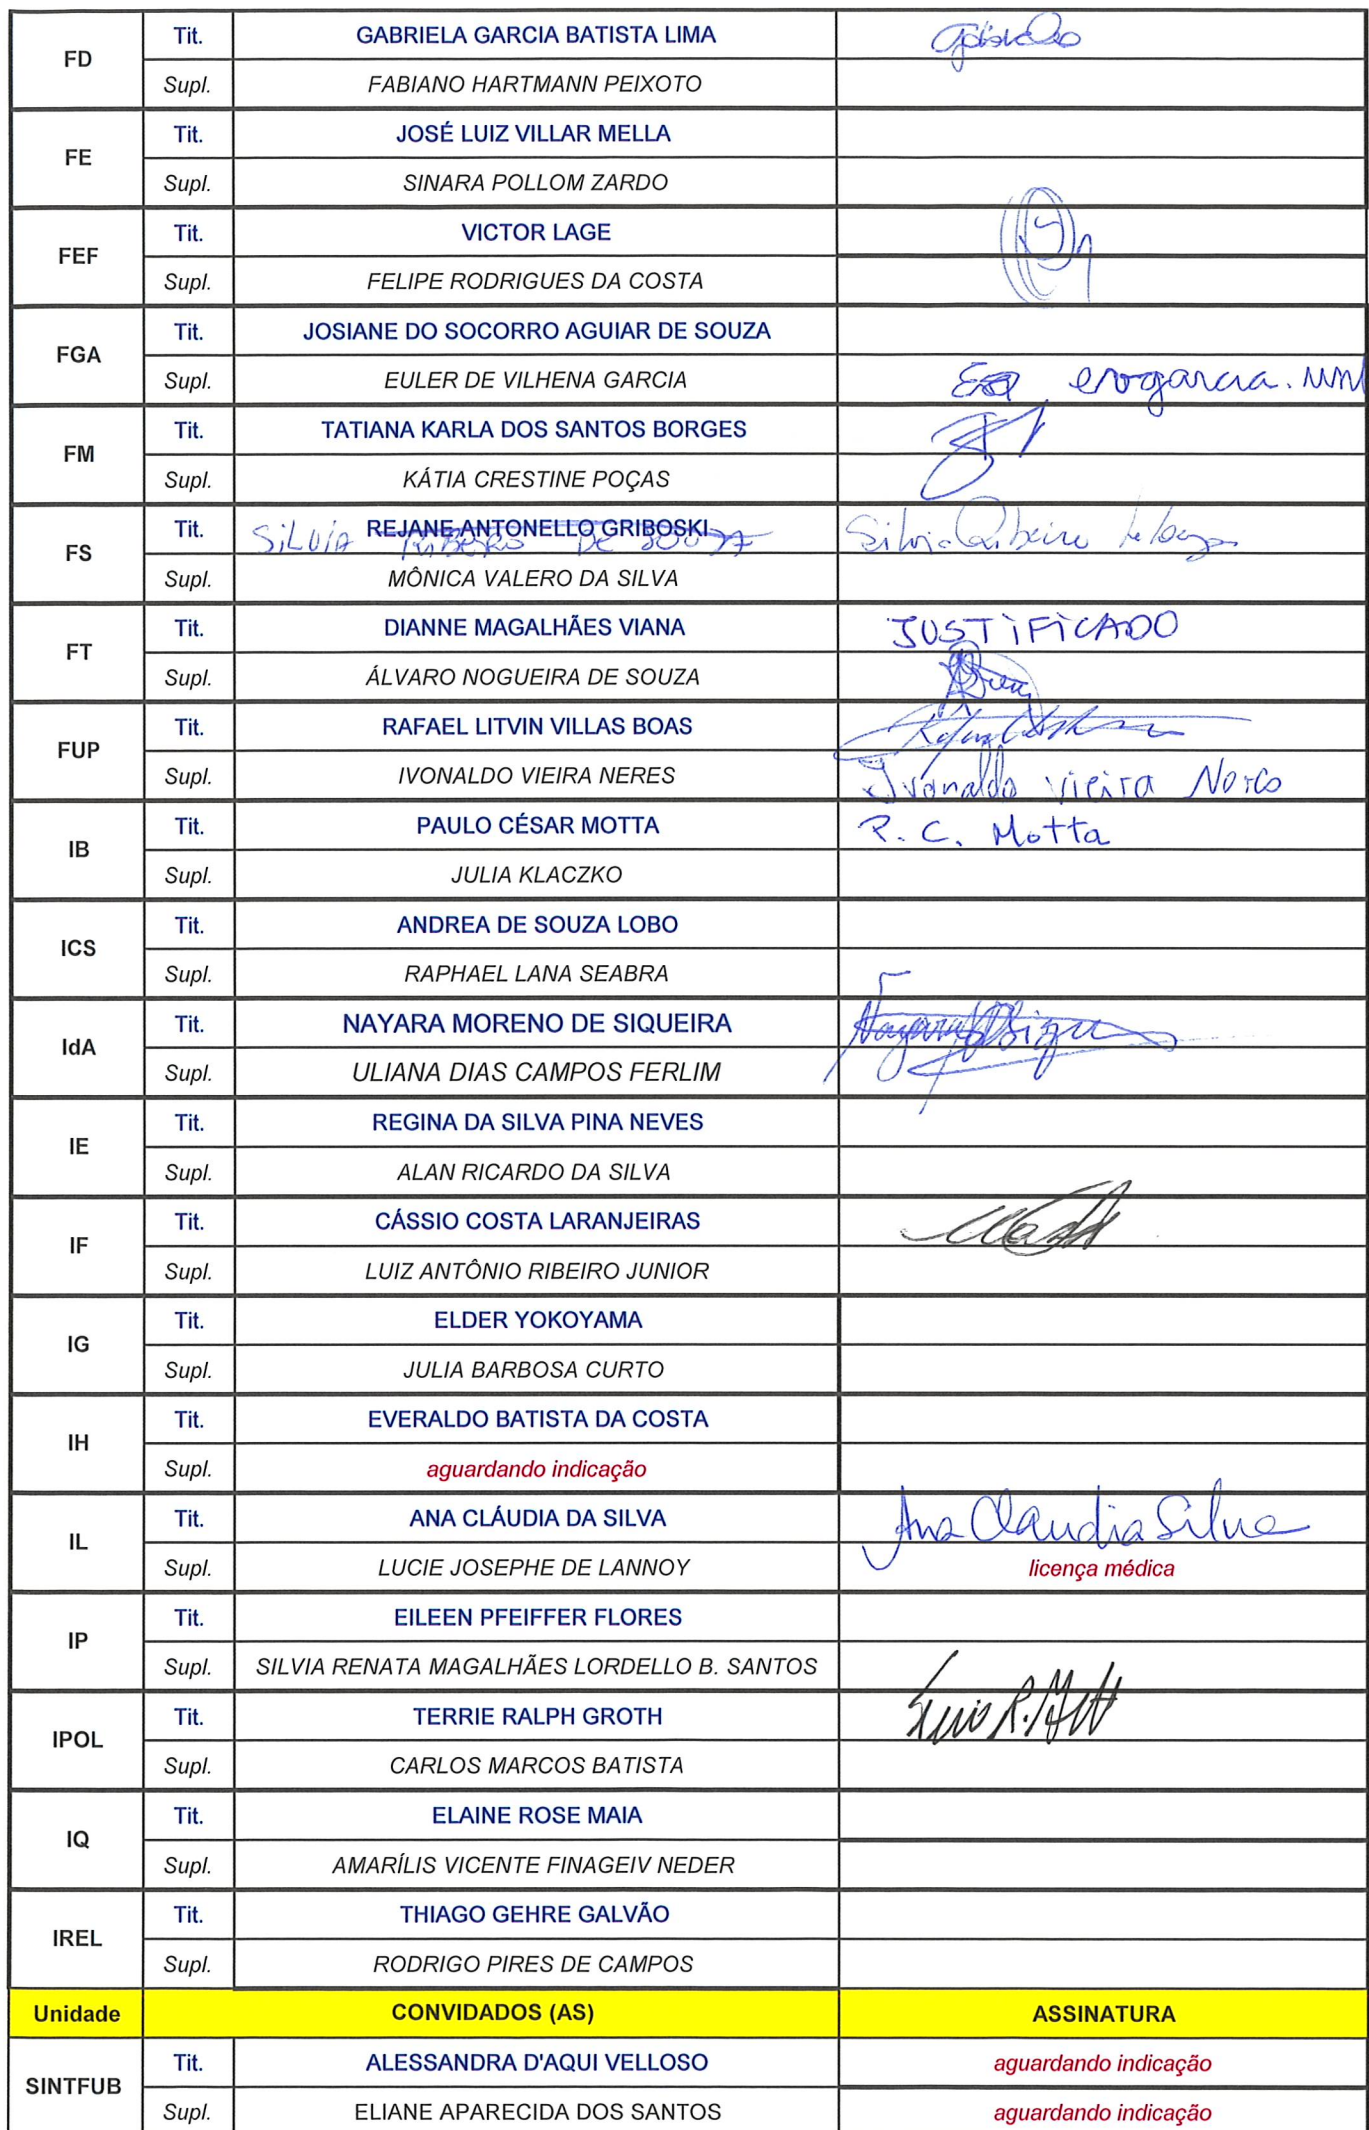 FD Tit. GABRIELA GARCIA BATISTA LIMA
Supl. FABIANO HARTMANN PEIXOTO
FE Tit. JOSÉ LUIZ VILLAR MELLA
Supl. SINARA POLLOM ZARDO
FEF Tit. VICTOR LAGE
Supl. FELIPE RODRIGUES DA COSTA
FGA Tit. JOSIANE DO SOCORRO AGUIAR DE SOUZA
Supl. EULER DE VILHENA GARCIA
FM Tit. TATIANA KARLA DOS SANTOS BORGES
Supl. KÁTIA CRESTINE POÇAS
FS Tit. REJANE ANTONELLO GRIBOSKI
SILVIA RIBEIRO DE SOUZA Silvia Ribeiro de Souza
Supl. MÔNICA VALERO DA SILVA
FT Tit. DIANNE MAGALHÃES VIANA JUSTIFICADO
Supl. ÁLVARO NOGUEIRA DE SOUZA
FUP Tit. RAFAEL LITVIN VILLAS BOAS
Supl. IVONALDO VIEIRA NERES Ivonaldo Vieira Neres
IB Tit. PAULO CÉSAR MOTTA P. C. Motta
Supl. JULIA KLACZKO
ICS Tit. ANDREA DE SOUZA LOBO
Supl. RAPHAEL LANA SEABRA
IdA Tit. NAYARA MORENO DE SIQUEIRA
Supl. ULIANA DIAS CAMPOS FERLIM
IE Tit. REGINA DA SILVA PINA NEVES
Supl. ALAN RICARDO DA SILVA
IF Tit. CÁSSIO COSTA LARANJEIRAS
Supl. LUIZ ANTÔNIO RIBEIRO JUNIOR
IG Tit. ELDER YOKOYAMA
Supl. JULIA BARBOSA CURTO
IH Tit. EVERALDO BATISTA DA COSTA
Supl. aguardando indicação
IL Tit. ANA CLÁUDIA DA SILVA Ana Claudia Silva
Supl. LUCIE JOSEPHE DE LANNOY licença médica
IP Tit. EILEEN PFEIFFER FLORES
Supl. SILVIA RENATA MAGALHÃES LORDELLO B. SANTOS
IPOL Tit. TERRIE RALPH GROTH
Supl. CARLOS MARCOS BATISTA
IQ Tit. ELAINE ROSE MAIA
Supl. AMARÍLIS VICENTE FINAGEIV NEDER
IREL Tit. THIAGO GEHRE GALVÃO
Supl. RODRIGO PIRES DE CAMPOS
Unidade CONVIDADOS (AS) ASSINATURA
SINTFUB Tit. ALESSANDRA D'AQUI VELLOSO aguardando indicação
Supl. ELIANE APARECIDA DOS SANTOS aguardando indicação